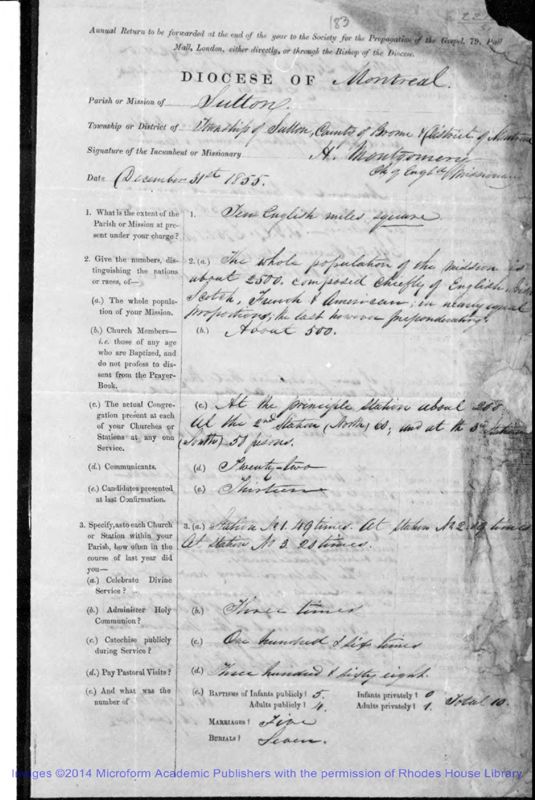 183
Annual Return to be forwarded at the end of the year to the Society for the Propagation of the Gospel, 79, Pall
Mall, London, either directly, or through the Bishop of the Diocese.
DIOCESE OF Montreal.
Parish or Mission of Sutton.
Township or District of Township of Sutton, County of Brome & District of Montreal
Signature of the Incumbent or Missionary H. Montgomery
Ch of Engld Missionary
Date December 31st 1855.
1. What is the extent of the
Parish or Mission at pre-
sent under your charge?
1. Ten English miles square
2. Give the numbers, dis-
tinguishing the nations
or races, of—
(a.) The whole popula-
tion of your Mission.
2. (a.) The whole population of the mission is
about 2500, composed chiefly of English,
Scotch, French & American; in nearly equal
proportions, the last however preponderating.
(b.) Church Members—
i.e. those of any age
who are Baptized, and
do not profess to dis-
sent from the Prayer-
Book.
(b.) About 500.
(c.) The actual Congre-
gation present at each
of your Churches or
Stations at any one
Service.
(c.) At the principle Station about 200
At the 2nd Station (North) 60, and at the 3rd Station
(South) 50 persons.
(d.) Communicants.
(d.) Twenty-two
(e.) Candidates presented
at last Confirmation.
(e.) Thirteen
3. Specify, as to each Church
or Station within your
Parish, how often in the
course of last year did
you—
(a.) Celebrate Divine
Service?
3. (a.) Station No 1. 49 times. At Station No 2. 49 times
At Station No 3. 20 times.
(b.) Administer Holy
Communion?
(b.) Three times
(c.) Catechise publicly
during Service?
(c.) One hundred & six times
(d.) Pay Pastoral Visits?
(d.) Three hundred & sixty eight
(e.) And what was the
number of
(e.) BAPTISMS of Infants publicly? 5. Infants privately? 0
Adults publicly? 4. Adults privately? 1. Total 10.
MARRIAGES? Five
BURIALS? Seven.
Images ©2014 Microform Academic Publishers with the permission of Rhodes House Library